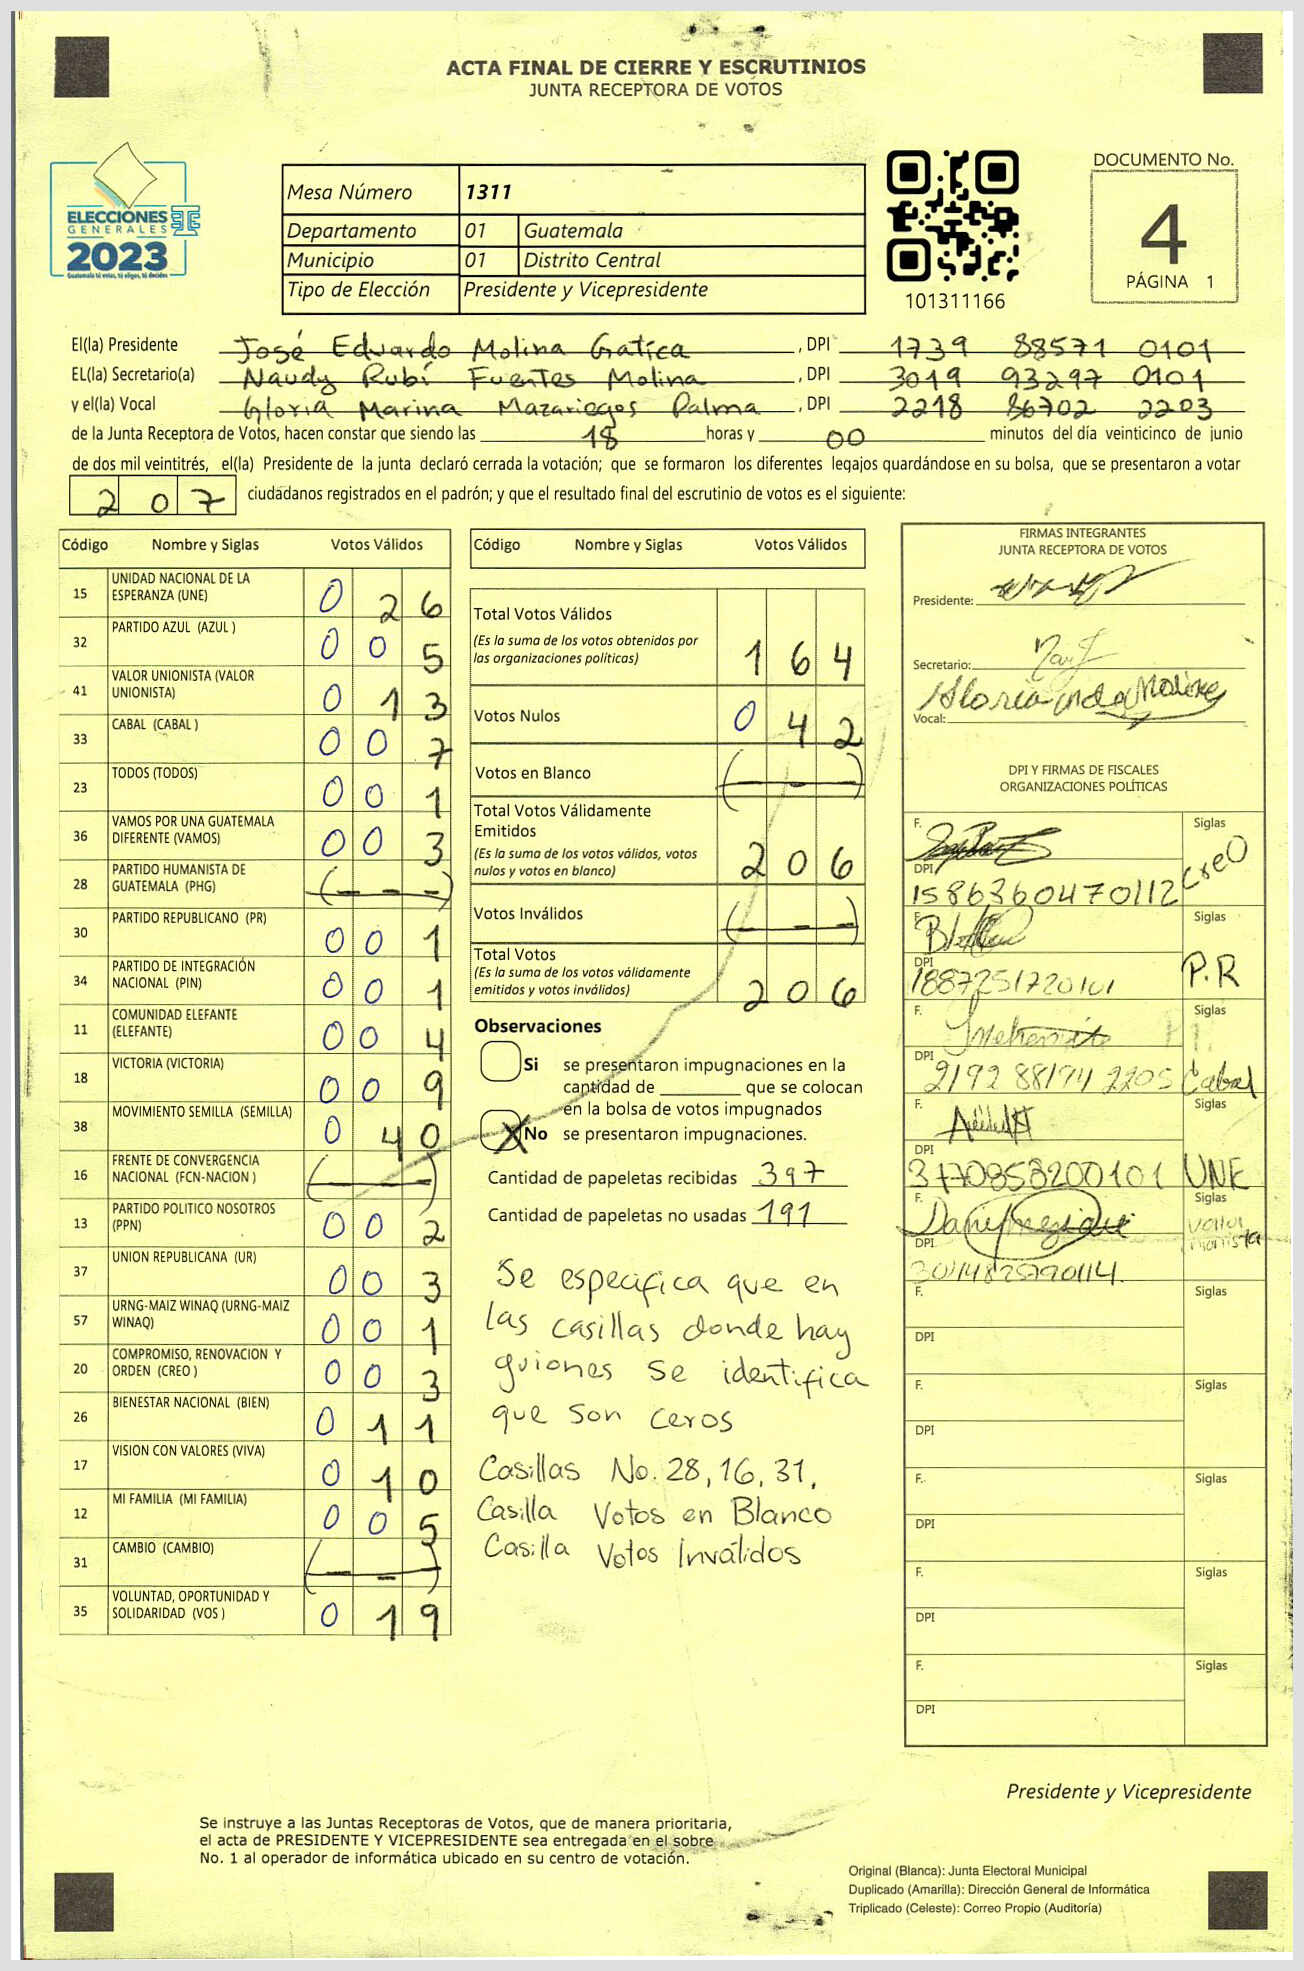 ACTA FINAL DE CIERRE Y ESCRUTINIOS
JUNTA RECEPTORA DE VOTOS
ELECCIONES
GENERALES
2023
Guatemala tú votas, tú eliges, tú decides
Mesa Número 1311
Departamento 01 Guatemala
Municipio 01 Distrito Central
Tipo de Elección Presidente y Vicepresidente
101311166
DOCUMENTO No.
4
PÁGINA 1
El(la) Presidente José Eduardo Molina Gatica , DPI 1739 88571 0101
EL(la) Secretario(a) Naudy Rubí Fuentes Molina , DPI 3019 93297 0101
y el(la) Vocal Gloria Marina Mazariegos Palma , DPI 2218 86702 2203
de la Junta Receptora de Votos, hacen constar que siendo las 18 horas y 00 minutos del día veinticinco de junio
de dos mil veintitrés, el(la) Presidente de la junta declaró cerrada la votación; que se formaron los diferentes legajos guardándose en su bolsa, que se presentaron a votar
207 ciudadanos registrados en el padrón; y que el resultado final del escrutinio de votos es el siguiente:
Código Nombre y Siglas Votos Válidos
15 UNIDAD NACIONAL DE LA ESPERANZA (UNE) 0 2 6
32 PARTIDO AZUL (AZUL ) 0 0 5
41 VALOR UNIONISTA (VALOR UNIONISTA) 0 1 3
33 CABAL (CABAL ) 0 0 7
23 TODOS (TODOS) 0 0 1
36 VAMOS POR UNA GUATEMALA DIFERENTE (VAMOS) 0 0 3
28 PARTIDO HUMANISTA DE GUATEMALA (PHG) (- - -)
30 PARTIDO REPUBLICANO (PR) 0 0 1
34 PARTIDO DE INTEGRACIÓN NACIONAL (PIN) 0 0 1
11 COMUNIDAD ELEFANTE (ELEFANTE) 0 0 4
18 VICTORIA (VICTORIA) 0 0 9
38 MOVIMIENTO SEMILLA (SEMILLA) 0 4 0
16 FRENTE DE CONVERGENCIA NACIONAL (FCN-NACION ) (- - -)
13 PARTIDO POLITICO NOSOTROS (PPN) 0 0 2
37 UNION REPUBLICANA (UR) 0 0 3
57 URNG-MAIZ WINAQ (URNG-MAIZ WINAQ) 0 0 1
20 COMPROMISO, RENOVACION Y ORDEN (CREO ) 0 0 3
26 BIENESTAR NACIONAL (BIEN) 0 1 1
17 VISION CON VALORES (VIVA) 0 1 0
12 MI FAMILIA (MI FAMILIA) 0 0 5
31 CAMBIO (CAMBIO) (- - -)
35 VOLUNTAD, OPORTUNIDAD Y SOLIDARIDAD (VOS ) 0 1 9
Código Nombre y Siglas Votos Válidos
Total Votos Válidos 1 6 4
(Es la suma de los votos obtenidos por
las organizaciones políticas)
Votos Nulos 0 4 2
Votos en Blanco (- - -)
Total Votos Válidamente
Emitidos 2 0 6
(Es la suma de los votos válidos, votos
nulos y votos en blanco)
Votos Inválidos (- - -)
Total Votos 2 0 6
(Es la suma de los votos válidamente
emitidos y votos inválidos)
Observaciones
Si se presentaron impugnaciones en la
cantidad de ________ que se colocan
en la bolsa de votos impugnados
X No se presentaron impugnaciones.
Cantidad de papeletas recibidas 397
Cantidad de papeletas no usadas 191
Se especifica que en
las casillas donde hay
guiones se identifica
que son ceros
Casillas No. 28, 16, 31,
Casilla Votos en Blanco
Casilla Votos Inválidos
FIRMAS INTEGRANTES
JUNTA RECEPTORA DE VOTOS
Presidente:
Secretario:
Vocal:
DPI Y FIRMAS DE FISCALES
ORGANIZACIONES POLÍTICAS
F. Siglas
DPI 1586360470112 CreO
F. Siglas
DPI 1887251720101 P.R
F. Siglas
DPI 2192 88194 2205 Cabal
F. Siglas
DPI 3170853200101 UNE
F. Siglas
DPI
F. Siglas
DPI
F. Siglas
DPI
F. Siglas
DPI
F. Siglas
DPI
F. Siglas
DPI
Presidente y Vicepresidente
Se instruye a las Juntas Receptoras de Votos, que de manera prioritaria,
el acta de PRESIDENTE Y VICEPRESIDENTE sea entregada en el sobre
No. 1 al operador de informática ubicado en su centro de votación.
Original (Blanca): Junta Electoral Municipal
Duplicado (Amarilla): Dirección General de Informática
Triplicado (Celeste): Correo Propio (Auditoría)